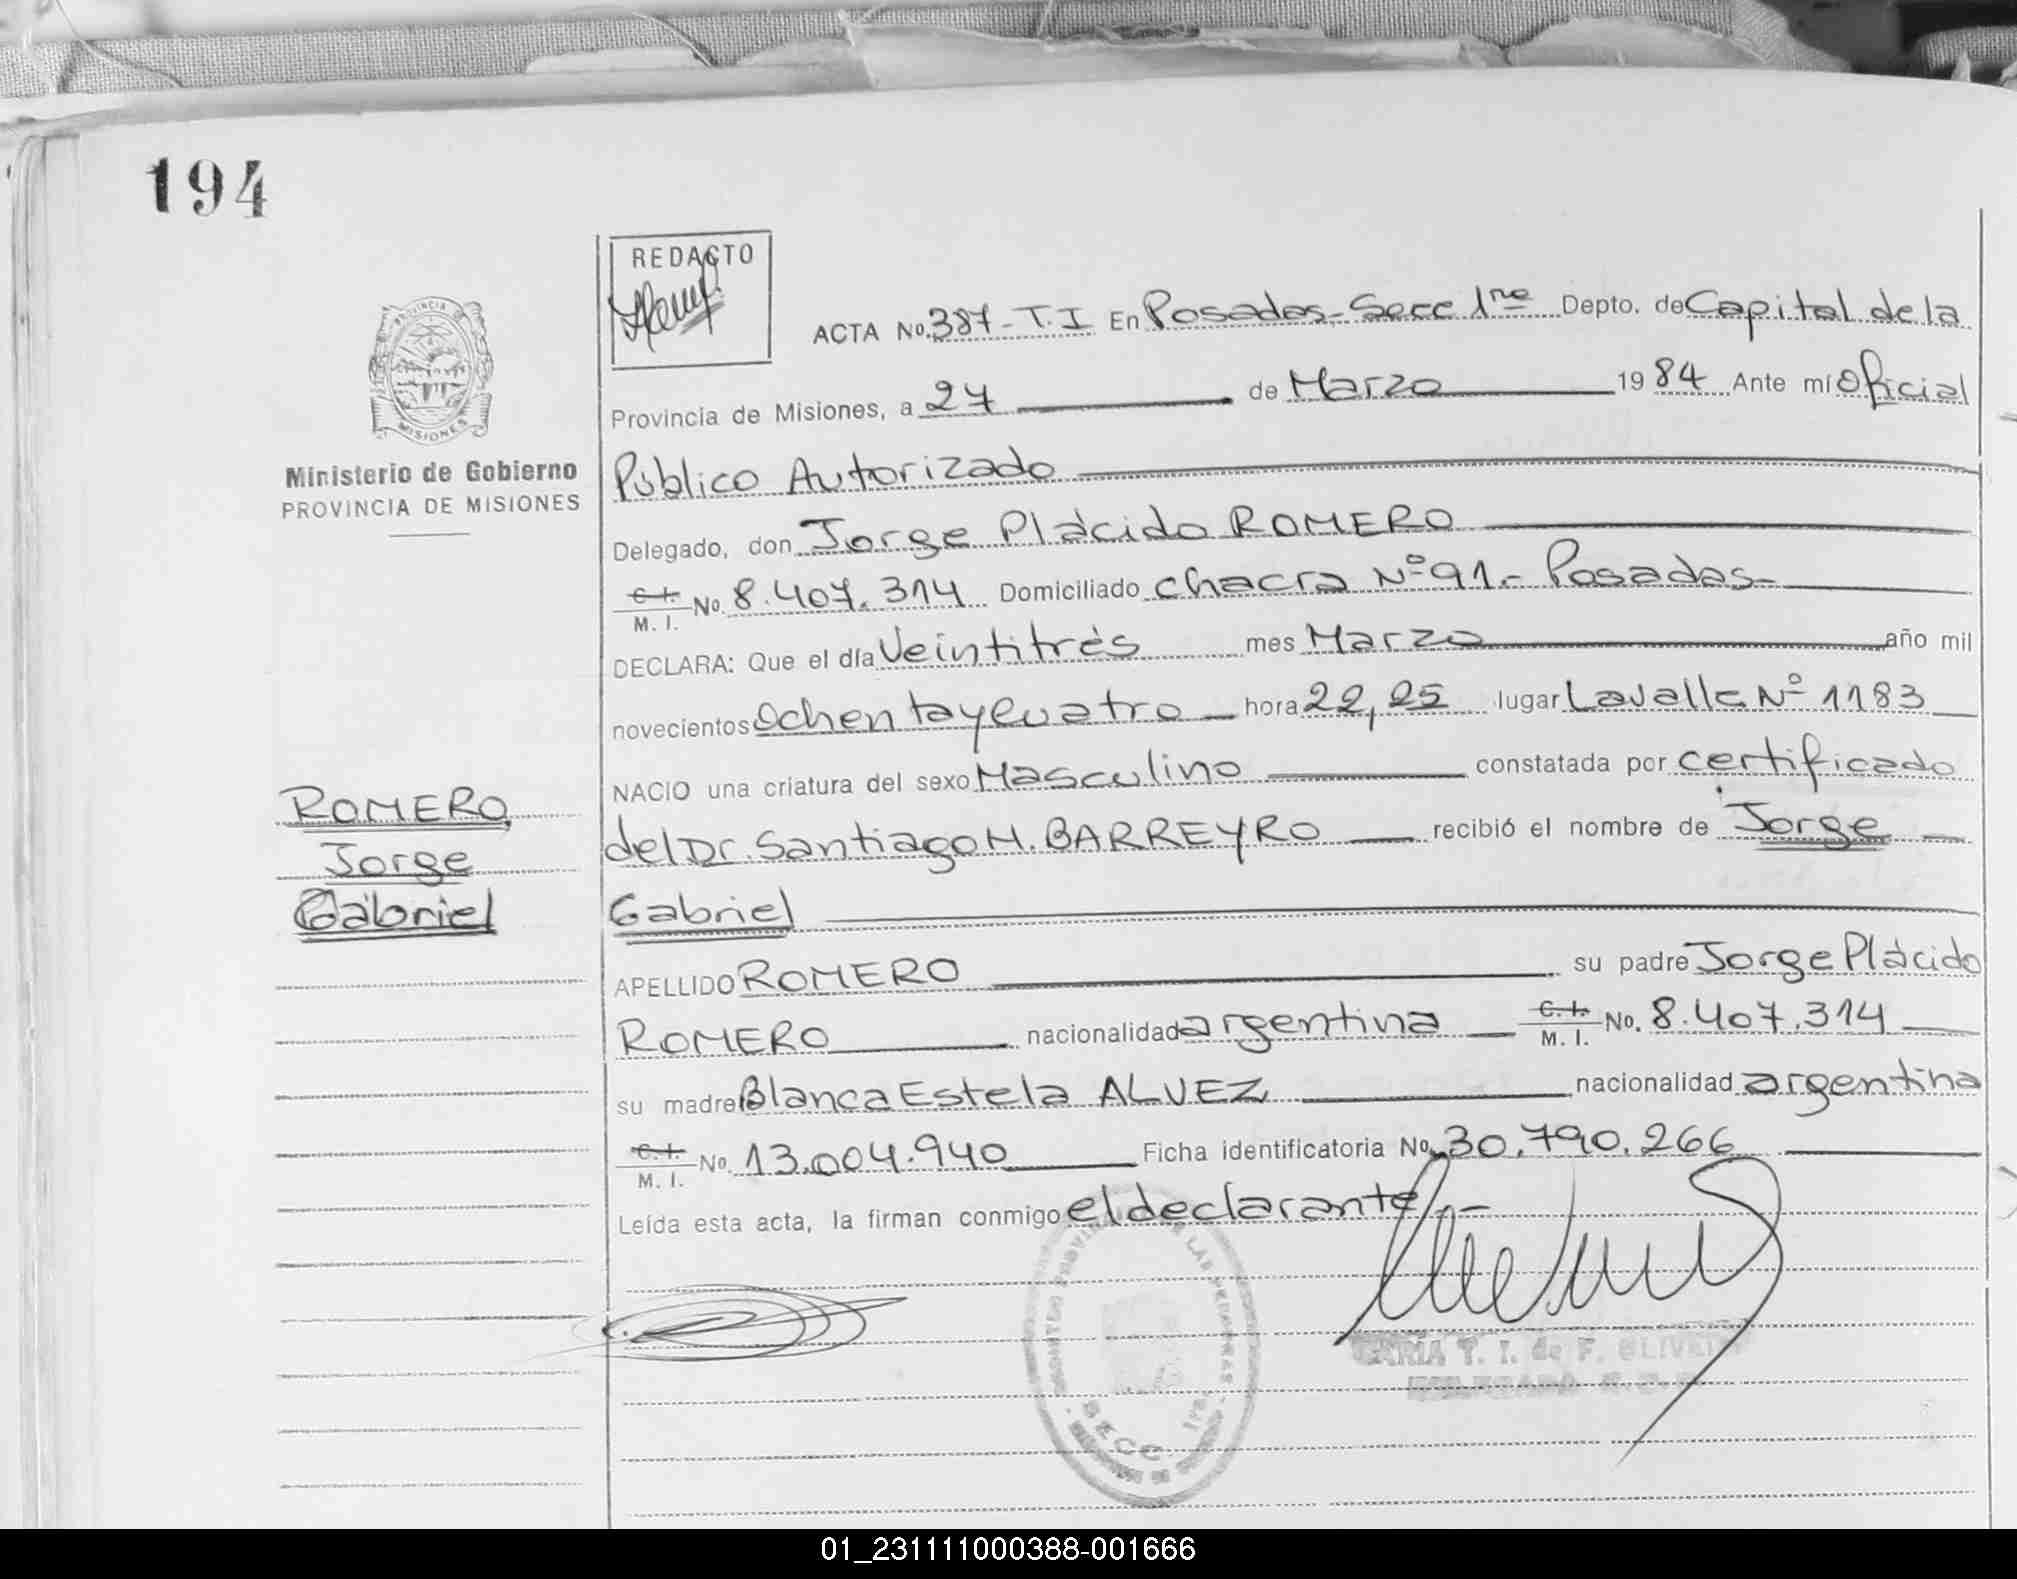 194
REDACTO
ACTA No. 387-T.I En Posadas-Secc 1ra Depto. de Capital de la
PROVINCIA
MISIONES
Provincia de Misiones, a 27 de Marzo 1984 Ante mí Oficial
Ministerio de Gobierno
PROVINCIA DE MISIONES
Público Autorizado
Delegado, don Jorge Plácido ROMERO
C.I. M. I. No. 8.407.314 Domiciliado chacra Nº 91.- Posadas-
DECLARA: Que el día Veintitrés mes Marzo año mil
novecientos Ochenta y cuatro hora 22,25 lugar Lavalle Nº 1183
NACIO una criatura del sexo Masculino constatada por certificado
ROMERO,
del Dr. Santiago M. BARREYRO recibió el nombre de Jorge
Jorge
Gabriel
Gabriel
APELLIDO ROMERO su padre Jorge Plácido
ROMERO nacionalidad argentina C.I. M. I. No. 8.407.314
su madre Blanca Estela ALVEZ nacionalidad argentina
C.I. M. I. No. 13.004.940 Ficha identificatoria No. 30.790.266
Leída esta acta, la firman conmigo el declarante.-
DE LAS PERSONAS
SECC. 1ra
MARIA T. I. de F. OLIVEIRA
01_231111000388-001666